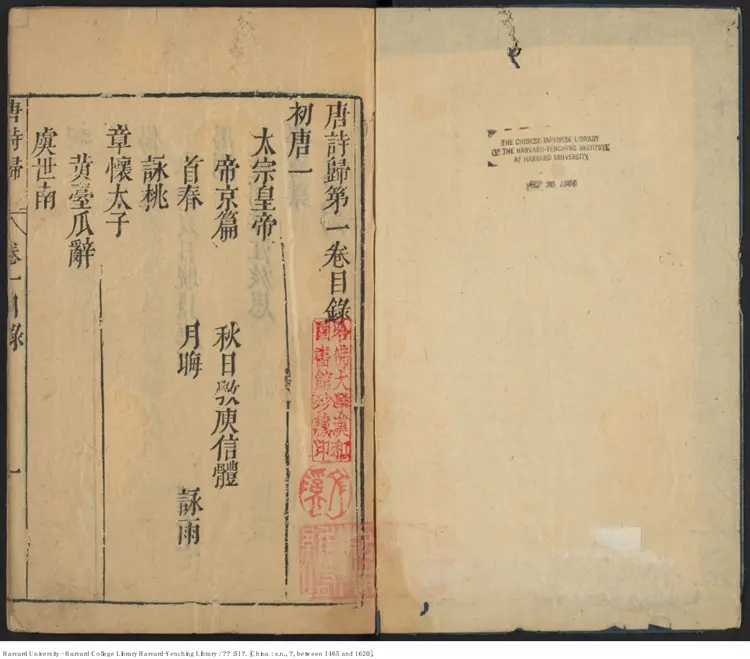 唐詩歸第一卷目錄
初唐一
太宗皇帝
帝京篇　秋日斆庾信體
首春　月晦　詠雨
詠桃
章懷太子
黄臺瓜辭
虞世南
唐詩歸　卷一目錄　一
哈佛大學漢和
圖書館珍藏印
THE CHINESE-JAPANESE LIBRARY
OF THE HARVARD-YENCHING INSTITUTE
AT HARVARD UNIVERSITY
SEP 20 1950
Harvard University - Harvard College Library Harvard-Yenching Library / ?? :51?. [China : s.n., ?, between 1465 and 1620].